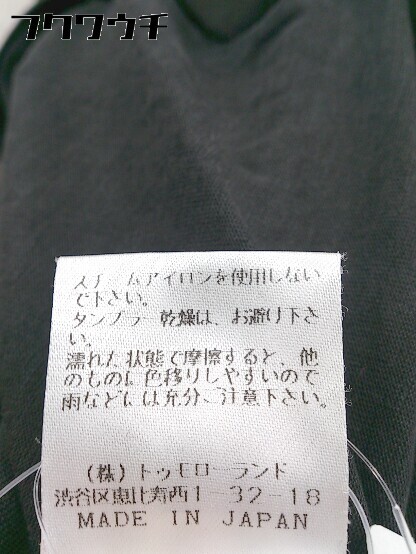 フクワウチ
スチームアイロンを使用しない
で下さい。
タンブラー乾燥は、お避け下さ
い。
濡れた状態で摩擦すると、他
のものに色移りしやすいので
雨などには充分ご注意下さい。
(株)トゥモローランド
渋谷区恵比寿西1-32-18
MADE IN JAPAN